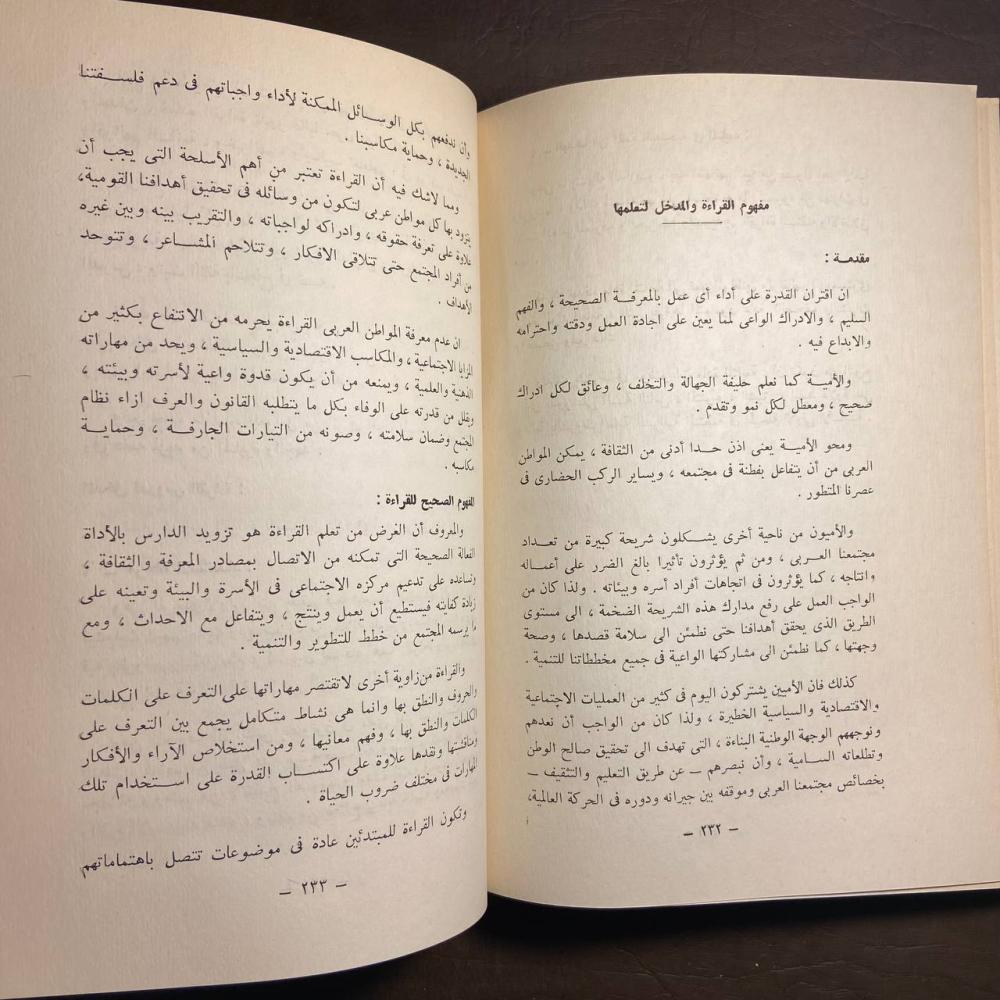 مفهوم القراءة والمدخل لتعلمها
مقدمة :
ان اقتران القدرة على أداء أى عمل بالمعرفة الصحيحة ، والفهم
السليم ، والادراك الواعى لمما يعين على اجادة العمل ودقته واحترامه
والابداع فيه .
والأمية كما نعلم حليفة الجهالة والتخلف ، وعائق لكل ادراك
صحيح ، ومعطل لكل نمو وتقدم .
ومحو الأمية يعنى اذن حدا أدنى من الثقافة ، يمكن المواطن
العربى من أن يتفاعل بفطنة فى مجتمعه ، ويساير الركب الحضارى فى
عصرنا المتطور .
والأميون من ناحية أخرى يشكلون شريحة كبيرة من تعداد
مجتمعنا العربى ، ومن ثم يؤثرون تأثيرا بالغ الضرر على أعماله
وانتاجه ، كما يؤثرون فى اتجاهات أفراد أسره وبيئاته . ولذا كان من
الواجب العمل على رفع مدارك هذه الشريحة الضخمة ، الى مستوى
الطريق الذى يحقق أهدافنا حتى نطمئن الى سلامة قصدها ، وصحة
وجهتها ، كما نطمئن الى مشاركتها الواعية فى جميع مخططاتنا للتنمية .
كذلك فان الأميين يشتركون اليوم فى كثير من العمليات الاجتماعية
والاقتصادية والسياسية الخطيرة ، ولذا كان من الواجب أن نعدهم
ونوجههم الوجهة الوطنية البناءة ، التى تهدف الى تحقيق صالح الوطن
وتطلعاته السامية ، وأن نبصرهم — عن طريق التعليم والتثقيف —
بخصائص مجتمعنا العربى وموقفه بين جيرانه ودوره فى الحركة العالمية،
— ٢٣٢ —
وأن ندفعهم بكل الوسائل الممكنة لأداء واجباتهم فى دعم فلسفتنا
الجديدة ، وحماية مكاسبنا .
ومما لاشك فيه أن القراءة تعتبر من أهم الأسلحة التى يجب أن
يتزود بها كل مواطن عربى لتكون من وسائله فى تحقيق أهدافنا القومية،
علاوة على تعرفة حقوقه ، وادراكه لواجباته ، والتقريب بينه وبين غيره
من أفراد المجتمع حتى تتلاقى الافكار ، وتتلاحم المشاعر ، وتتوحد
الأهداف .
ان عدم معرفة المواطن العربى القراءة يحرمه من الانتفاع بكثير من
المزايا الاجتماعية ، والمكاسب الاقتصادية والسياسية ، ويحد من مهاراته
الذهنية والعلمية ، ويمنعه من أن يكون قدوة واعية لأسرته وبيئته ،
ويقلل من قدرته على الوفاء بكل ما يتطلبه القانون والعرف ازاء نظام
المجتمع وضمان سلامته ، وصونه من التيارات الجارفة ، وحماية
مكاسبه .
المفهوم الصحيح للقراءة :
والمعروف أن الغرض من تعلم القراءة هو تزويد الدارس بالأداة
الفعالة الصحيحة التى تمكنه من الاتصال بمصادر المعرفة والثقافة ،
وتساعده على تدعيم مركزه الاجتماعى فى الأسرة والبيئة وتعينه على
زيادة كفايته فيستطيع أن يعمل وينتج ، ويتفاعل مع الاحداث ، ومع
ما يرسمه المجتمع من خطط للتطوير والتنمية .
والقراءة من زاوية أخرى لاتقتصر مهاراتها على التعرف على الكلمات
والحروف والنطق بها وانما هى نشاط متكامل يجمع بين التعرف على
الكلمات والنطق بها ، وفهم معانيها ، ومن استخلاص الآراء والأفكار
ومناقشتها ونقدها علاوة على اكتساب القدرة على استخدام تلك
المهارات فى مختلف ضروب الحياة .
وتكون القراءة للمبتدئين عادة فى موضوعات تتصل باهتماماتهم
— ٢٣٣ —